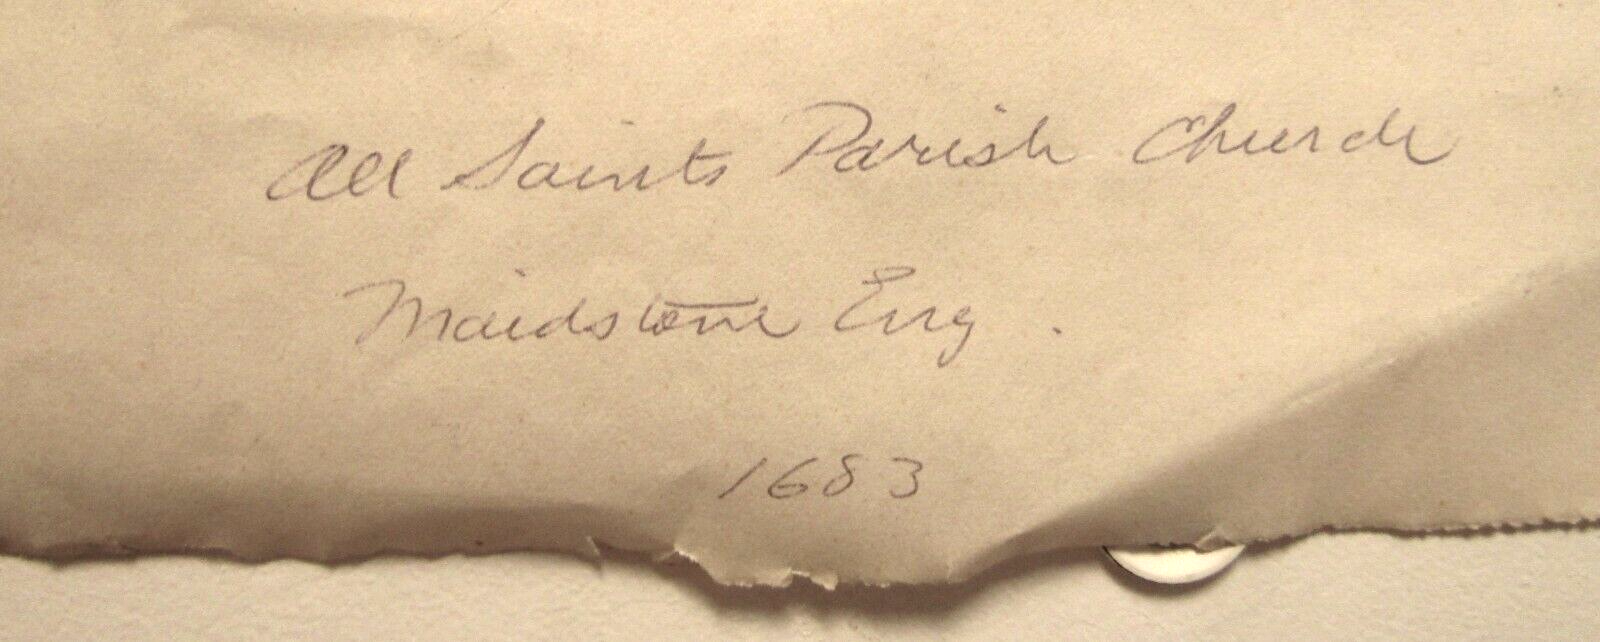 All Saints Parish Church
Maidstone Eng.
1683